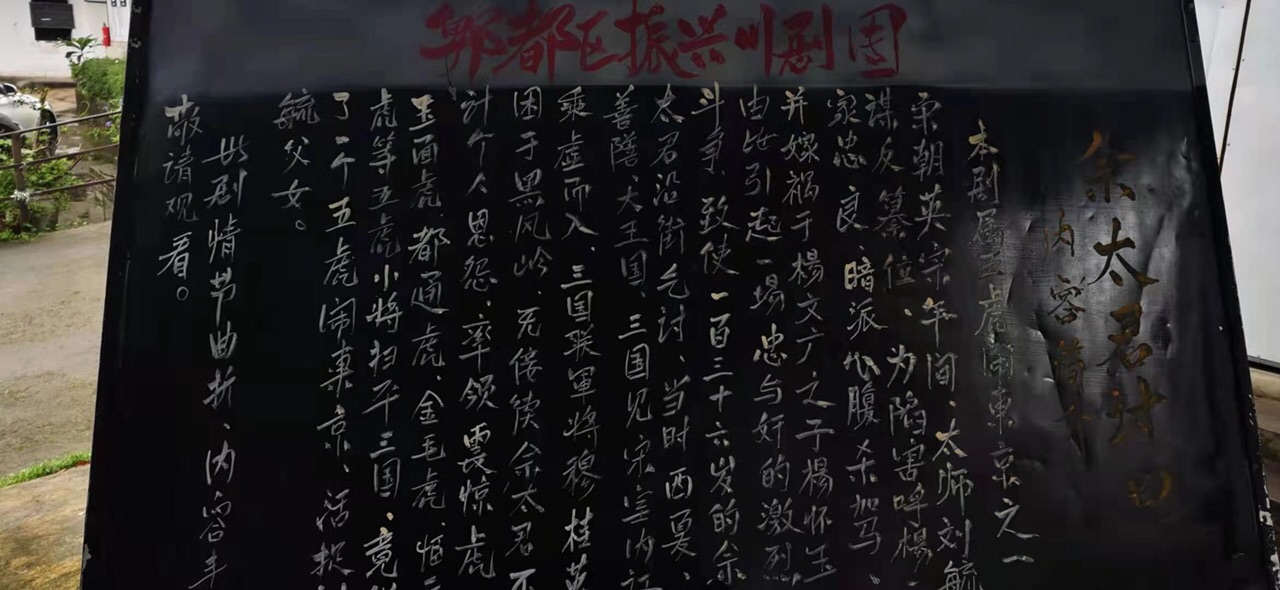 郫都区振兴川剧团
佘太君讨口
内容简介
本剧属五虎闹東京之一
宋朝英宗年间、太师刘毓
谋反篡位、为陷害呼楊、
家忠良、暗派心腹杀加马、
并嫁祸于楊文广之子楊怀玉
由此引起一場忠与奸的激烈
斗争、致使一百三十六岁的佘
太君沿街乞讨、当时西夏、
善鄯、大王国、三国见宋室内讧
乘虚而入、三国联軍将穆桂英
困于黑风岭、死侫佘太君不
计个人恩怨、率领震惊虎
玉面虎、都通虎、金毛虎、恒
虎等五虎小将扫平三国、竟
了一个五虎闹東京、活捉
毓父女。
此剧情节曲折、内容丰
敬请观看。